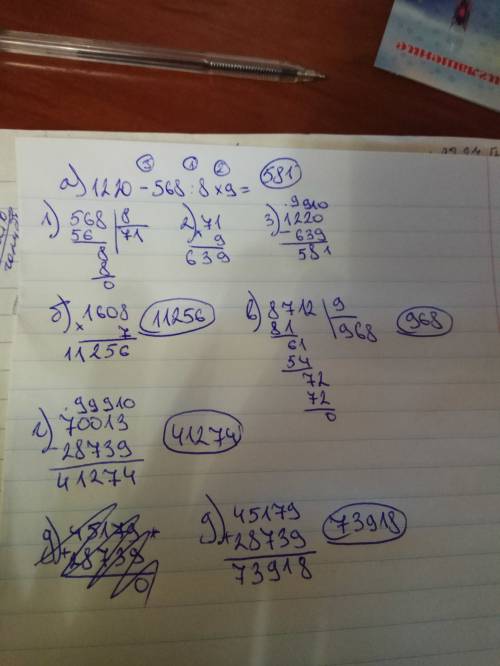 иглашение
③ ① ②
а) 1220 - 568 : 8 × 9 = 581
1) 568 | 8
56 71
8
8
0
2) × 71
9
639
3) . 9 9 10
1220
- 639
581
б) × 1608
7
11256
11256
в) 8712 | 9
81 968
61
54
72
72
0
968
г) . 9 9 9 10
70013
- 28739
41274
41274
д) 45179
+ 28739
0
д) 45179
+ 28739
73918
73918